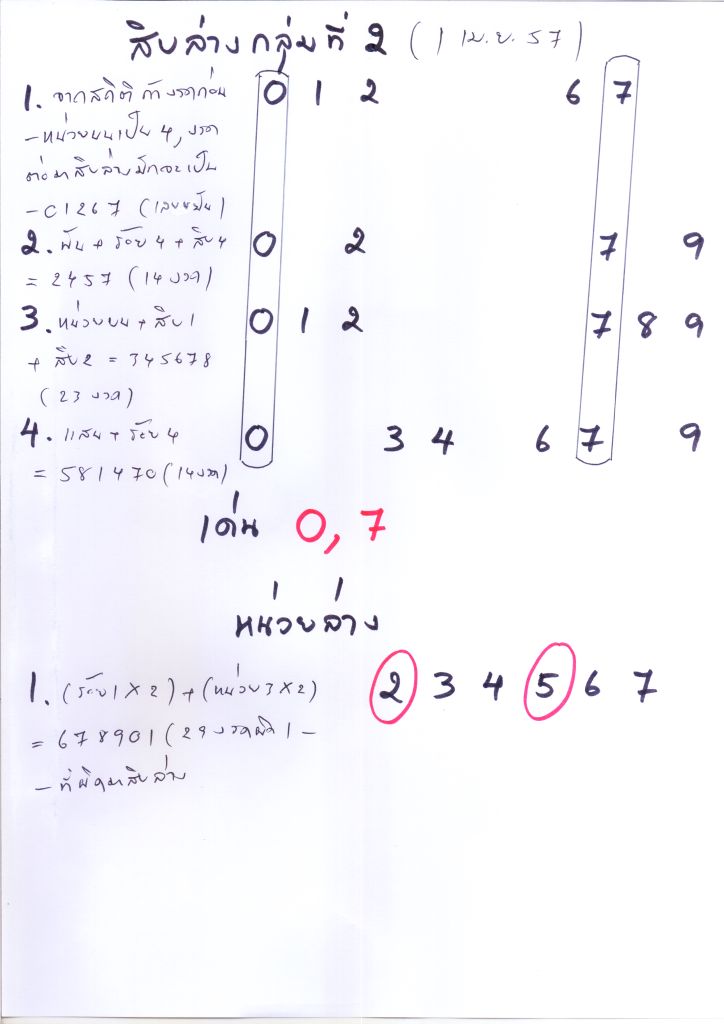 สิบล่างกลุ่มที่ 2 (1 เม.ย. 57)
1. จากสถิติ ถ้างวดก่อน 0 1 2 6 7
-หน่วยบนเป็น 4, งวด
ต่อมาสิบล่างมักจะเป็น
-01267 (เลข
2. พัน + ร้อย 4 + สิบ 4 0 2 7 9
= 2457 (14 งวด)
3. หน่วยบน + สิบ 1 0 1 2 7 8 9
+ สิบ 2 = 345678
(23 งวด)
4. แสน + ร้อย 4 0 3 4 6 7 9
= 581470 (14งวด)
เด่น 0, 7
หน่วยล่าง
1. (ร้อย 1 X 2) + (หน่วย 3 X 2) 2 3 4 5 6 7
= 678901 (29 งวดผิด 1 -
- ที่ผิดมาสิบล่าง